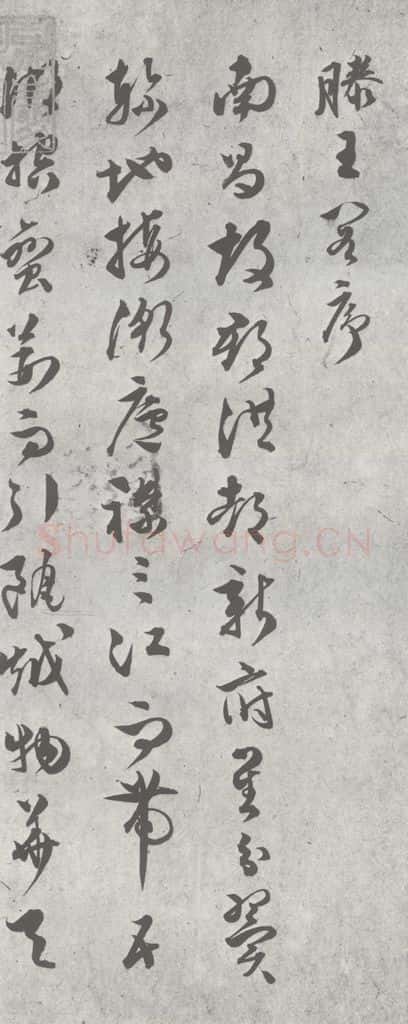 滕王閣序
南昌故郡洪都新府星分翼
軫地接衡廬襟三江而帶五
湖控蠻荊而引甌越物華天
Shufawang.CN